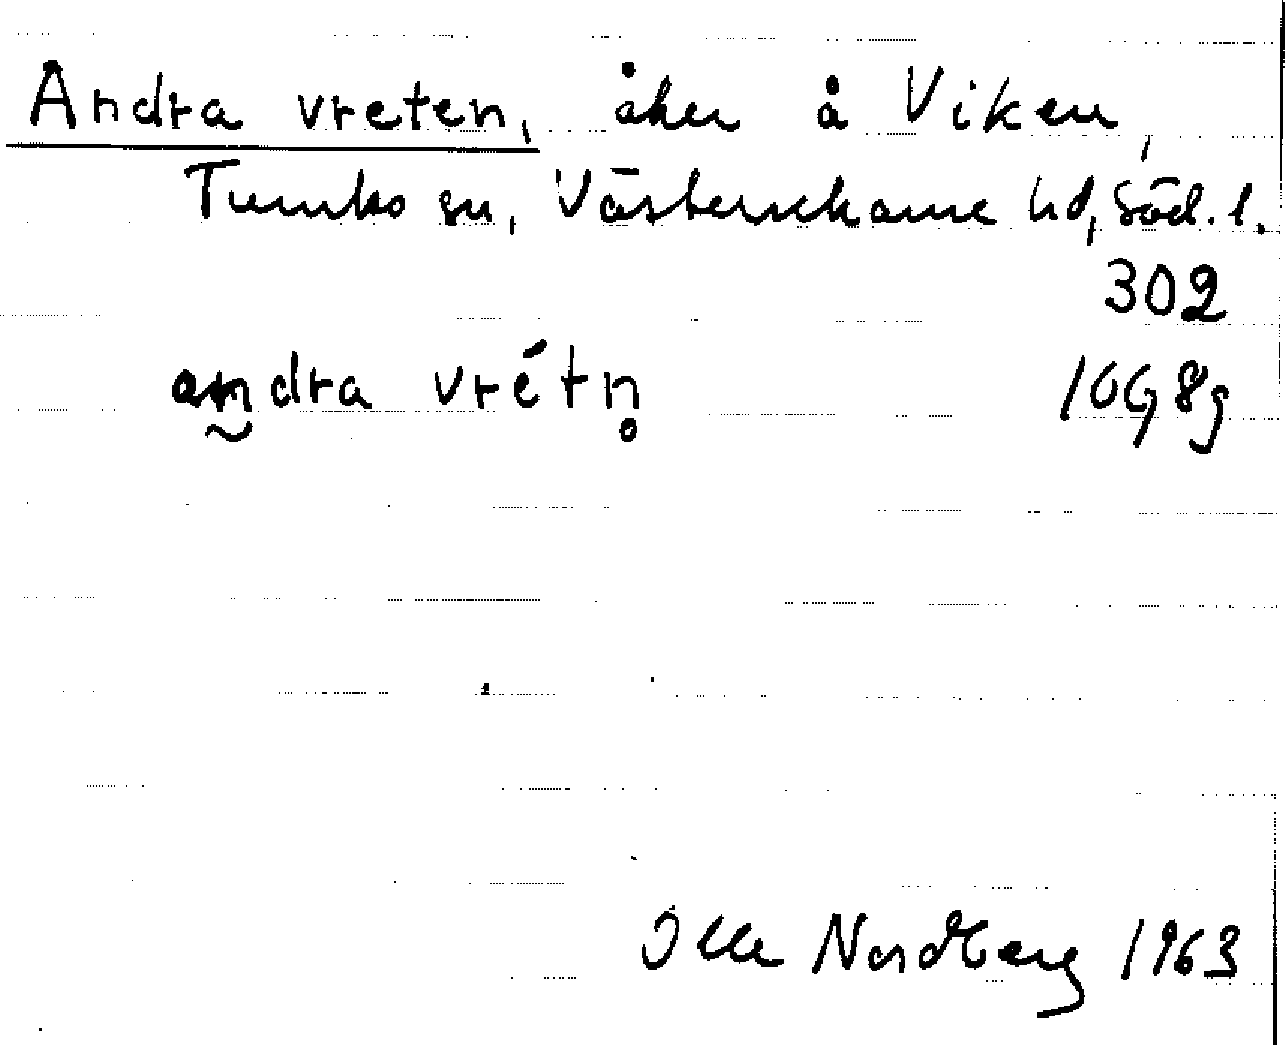 Andra vreten, åker å Viken,
Tumbo sn, Västerrekarne hd, Söd. l.
302
andra vrétn̥ 10G8g
Olle Nordberg 1963